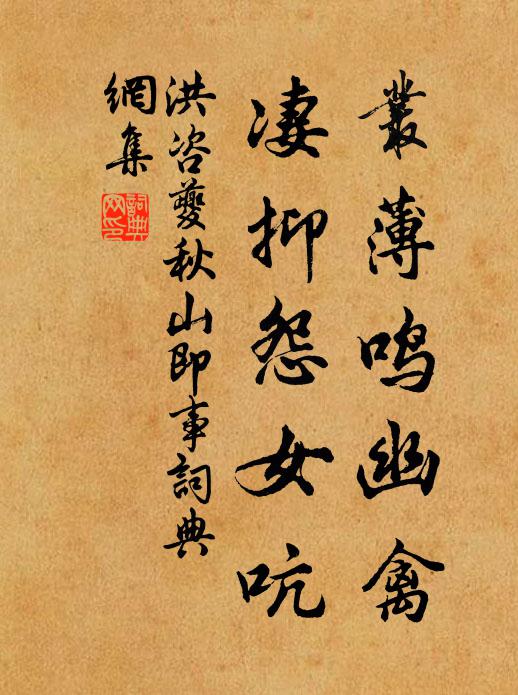 叢薄鳴幽禽
淒抑怨女吭
洪咨夔秋山即事詞典
網集
詞典
网印